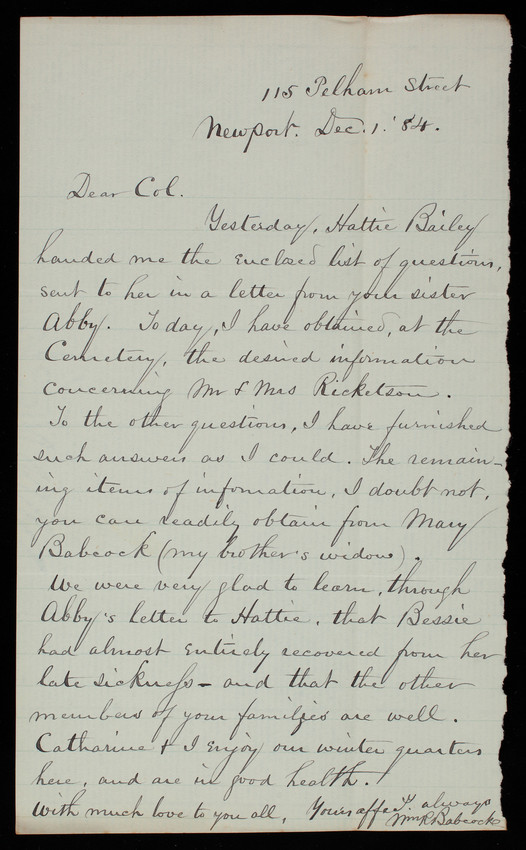 115 Pelham Street
Newport. Dec. 1. '84.
Dear Col.
Yesterday, Hattie Bailey
handed me the enclosed list of questions,
sent to her in a letter from your sister
Abby. Today, I have obtained, at the
Cemetery, the desired information
concerning Mr & Mrs Ricketson.
To the other questions, I have furnished
such answers as I could. The remain-
ing items of information, I doubt not,
you can readily obtain from Mary
Babcock (my brother's widow).
We were very glad to learn, through
Abby's letter to Hattie, that Bessie
had almost entirely recovered from her
late sickness - and that the other
members of your families are well.
Catharine & I enjoy our winter quarters
here, and are in good health.
With much love to you all, Yours affe'ly always
Wm R Babcock